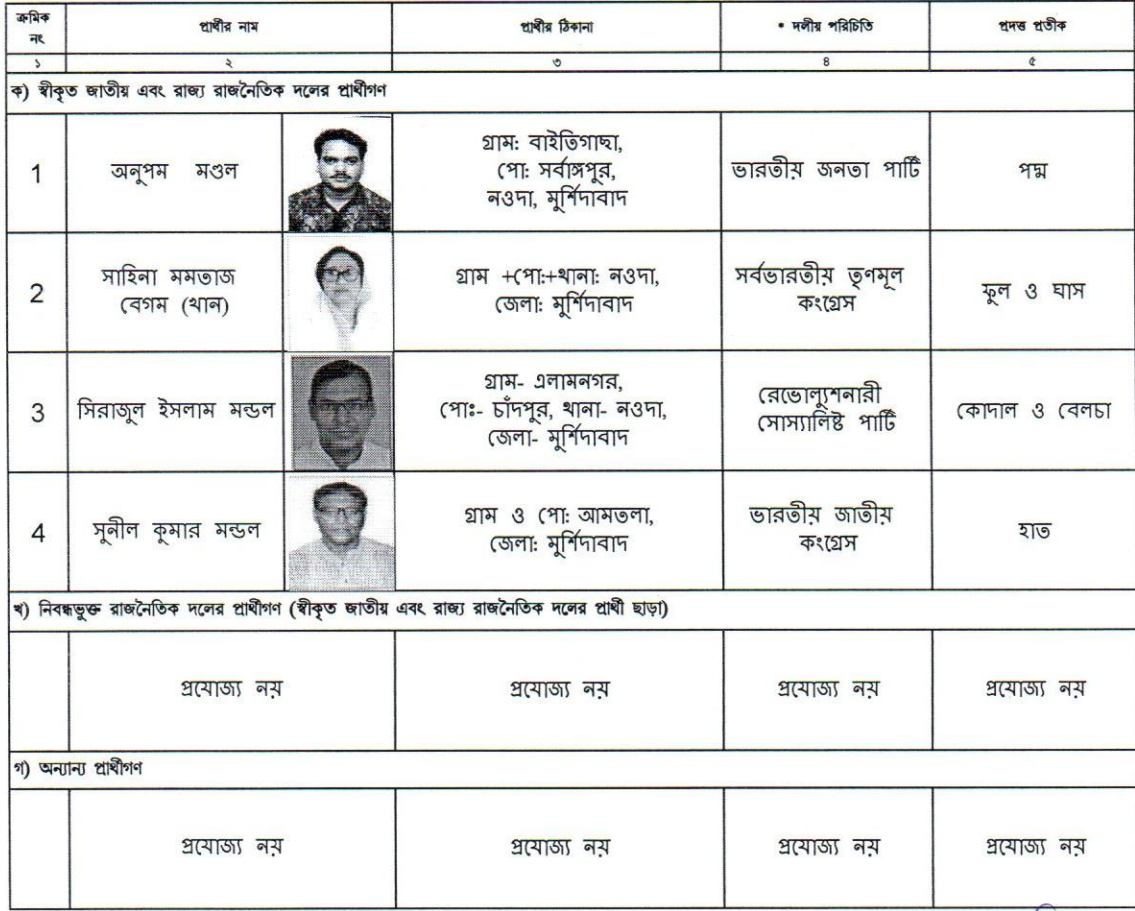 ক্রমিক নং প্রার্থীর নাম প্রার্থীর ঠিকানা * দলীয় পরিচিতি প্রদত্ত প্রতীক
১ ২ ৩ ৪ ৫
ক) স্বীকৃত জাতীয় এবং রাজ্য রাজনৈতিক দলের প্রার্থীগণ
1
অনুপম মণ্ডল
গ্রাম: বাইতিগাছা,
পো: সর্বাঙ্গপুর,
নওদা, মুর্শিদাবাদ
ভারতীয় জনতা পার্টি
পদ্ম
2
সাহিনা মমতাজ
বেগম (খান)
গ্রাম +পো:+থানা: নওদা,
জেলা: মুর্শিদাবাদ
সর্বভারতীয় তৃণমূল
কংগ্রেস
ফুল ও ঘাস
3
সিরাজুল ইসলাম মন্ডল
গ্রাম- এলামনগর,
পোঃ- চাঁদপুর, থানা- নওদা,
জেলা- মুর্শিদাবাদ
রেভোল্যুশনারী
সোস্যালিষ্ট পার্টি
কোদাল ও বেলচা
4
সুনীল কুমার মন্ডল
গ্রাম ও পো: আমতলা,
জেলা: মুর্শিদাবাদ
ভারতীয় জাতীয়
কংগ্রেস
হাত
খ) নিবন্ধভুক্ত রাজনৈতিক দলের প্রার্থীগণ (স্বীকৃত জাতীয় এবং রাজ্য রাজনৈতিক দলের প্রার্থী ছাড়া)
প্রযোজ্য নয় প্রযোজ্য নয় প্রযোজ্য নয় প্রযোজ্য নয়
গ) অন্যান্য প্রার্থীগণ
প্রযোজ্য নয় প্রযোজ্য নয় প্রযোজ্য নয় প্রযোজ্য নয়